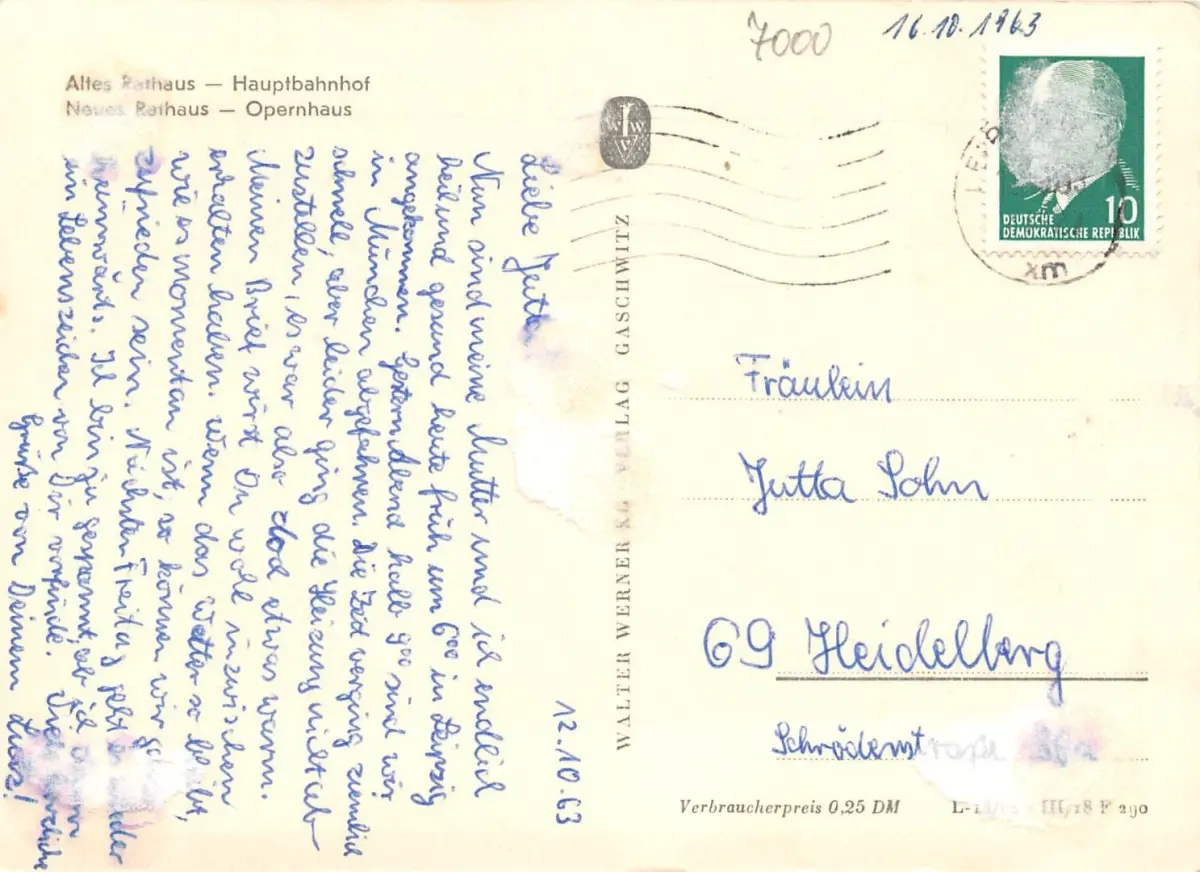 7000
16.10.1963
Altes Rathaus — Hauptbahnhof
Neues Rathaus — Opernhaus
DEUTSCHE
DEMOKRATISCHE REPUBLIK
10
12.10.63
Liebe Jutta
Nun sind meine Mutter und ich endlich
heil und gesund heute früh um 6⁰⁰ in Leipzig
angekommen. Gestern Abend halb 9⁰⁰ sind wir
in München abgefahren. Die Zeit verging ziemlich
schnell, aber leider ging die Heizung nicht ab
zustellen, es war also etwas warm.
Meinen Brief wirst Du wohl inzwischen
erhalten haben. Wenn das Wetter so bleibt,
wie es momentan ist, so können wir
zufrieden sein. Nächsten Freitag geht es wieder
heimwärts. Ich bin ja gespannt, ob ich
ein Lebenszeichen von Dir vorfinde. Viele herzliche
Grüße von Deinem
WALTER WERNER VERLAG GASCHWITZ
Fräulein
Jutta Sohn
69 Heidelberg
Schröderstraße
Verbraucherpreis 0,25 DM
III/18 F 290